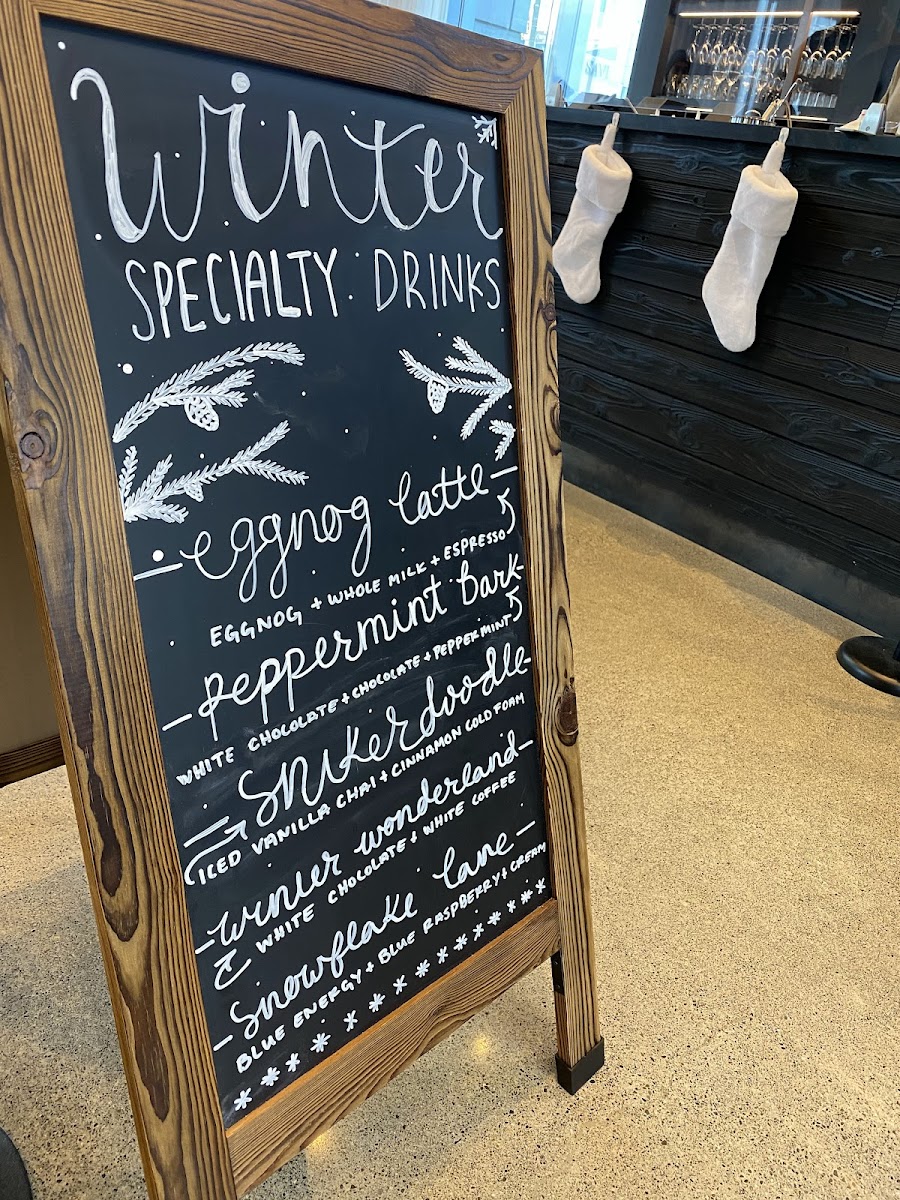 Winter
SPECIALTY DRINKS
eggnog latte
EGGNOG + WHOLE MILK + ESPRESSO
Peppermint Bark
WHITE CHOCOLATE + CHOCOLATE + PEPPERMINT
Snikerdoodle
ICED VANILLA CHAI + CINNAMON COLD FOAM
winter wonderland
WHITE CHOCOLATE + WHITE COFFEE
Snowflake lane
BLUE ENERGY + BLUE RASPBERRY + CREAM